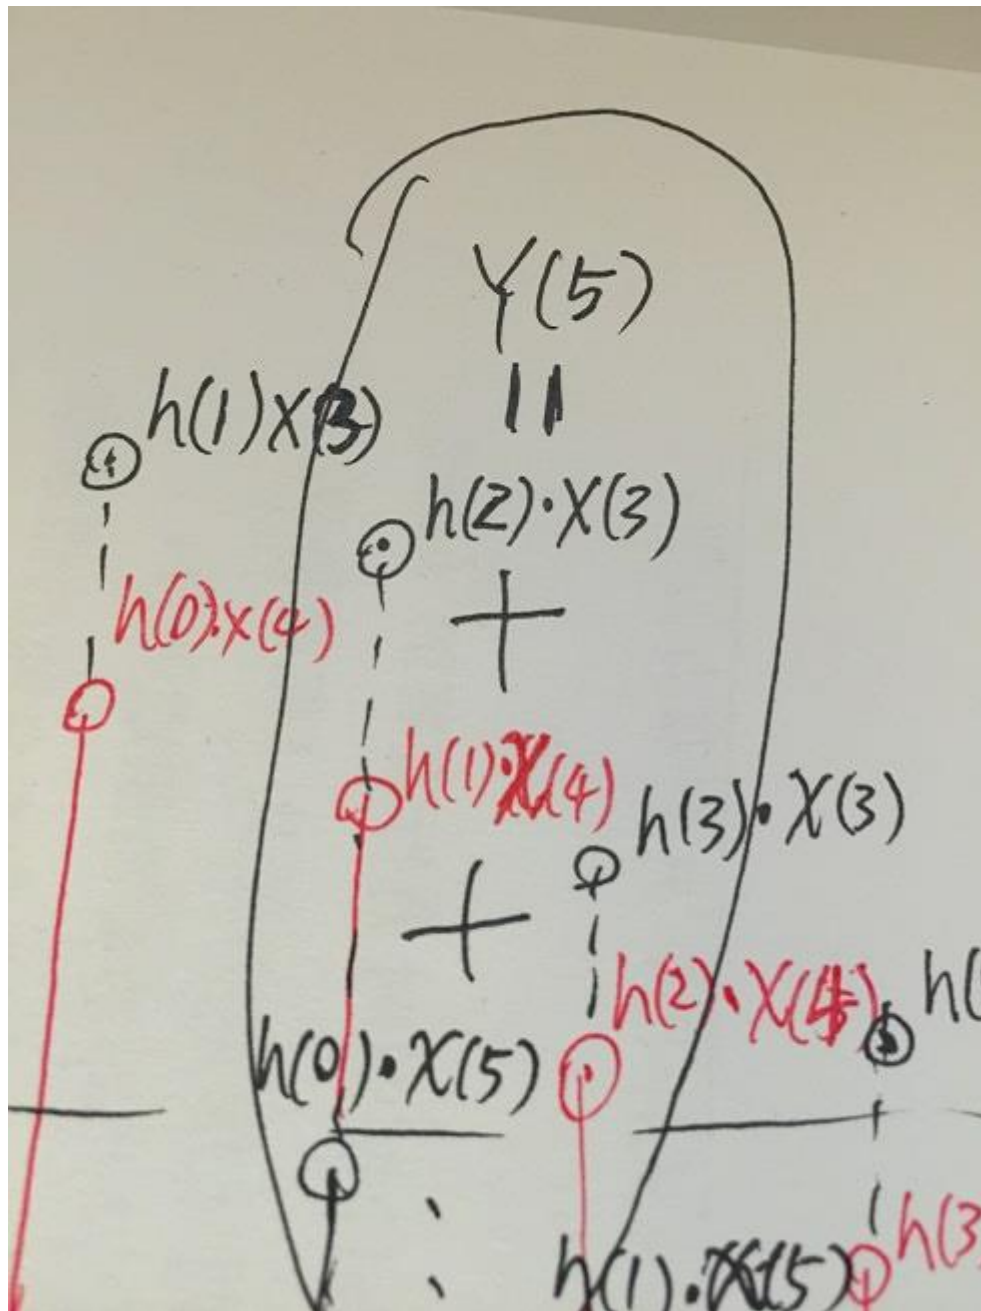 Y(5)
=
h(1)X(3)
h(2)·X(3)
+
h(0)·X(4)
h(1)·X(4)
h(3)·X(3)
+
h(2)·X(4)
h(
h(0)·X(5)
h(3
h(1)·X(5)